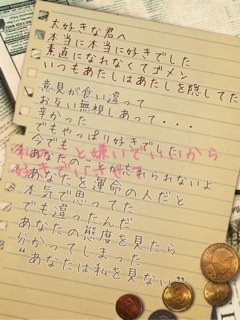 大好きな君へ
本当に本当に好きでした
素直になれなくてゴメン
いつもあたしはあたしを隠してた
意見が食い違って
お互い無視しあって・・・
辛かった
でもやっぱり好きでした
今でも
あなたの
られないよ
あなたを運命の人だと
本気で思ってた
でも違ったんだ
あなたの態度を見たら
分かってしまった
“あなたは私を見ない”
嫌いでいいから